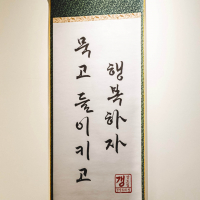 묵고 들이키고
행복하자
갱